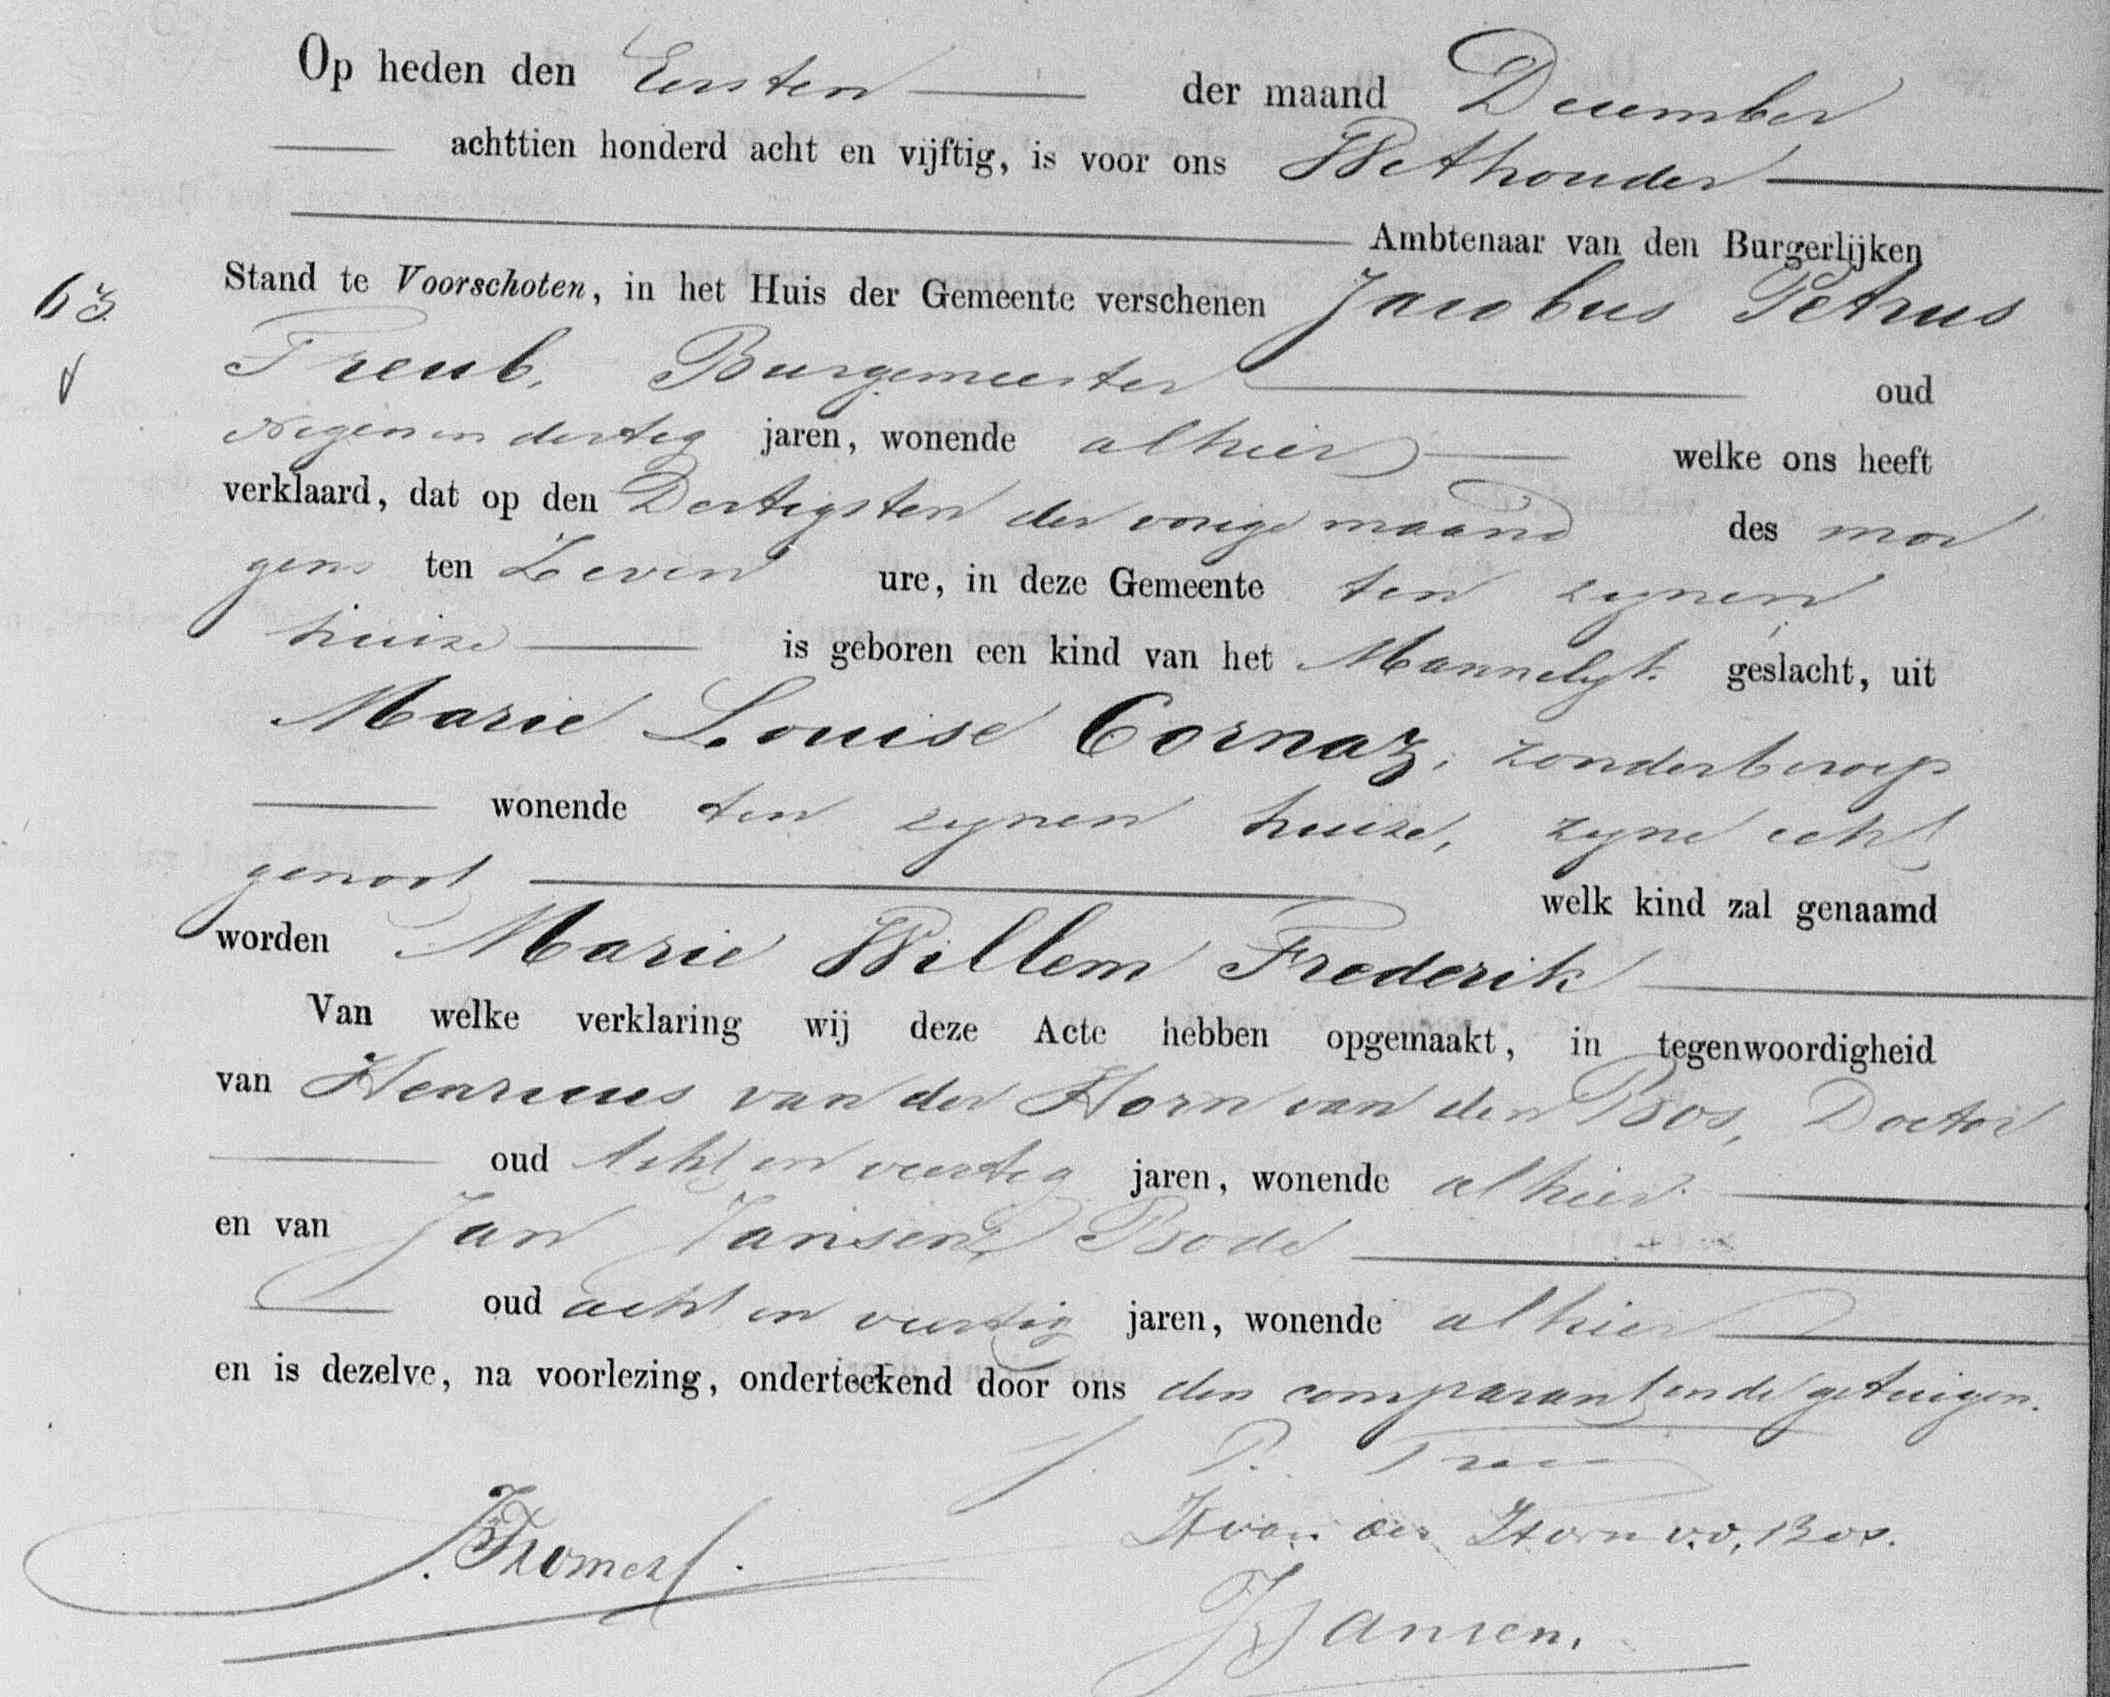 Op heden den Eersten der maand December
achttien honderd acht en vijftig, is voor ons Wethouder
Ambtenaar van den Burgerlijken
Stand te Voorschoten, in het Huis der Gemeente verschenen Jacobus Petrus
63
Treub, Burgemeester oud
Negenendertig jaren, wonende alhier welke ons heeft
verklaard, dat op den Dertigsten der vorige maand des mor
gens ten Zeven ure, in deze Gemeente ten zynen
huize is geboren een kind van het Mannelyk geslacht, uit
Marie Louise Cornaz, zonder beroep
wonende ten zynen huize, zyne echt
genoot welk kind zal genaamd
worden Marie Willem Frederik
Van welke verklaring wij deze Acte hebben opgemaakt, in tegenwoordigheid
van Henricus van der Horn van den Bos, Doctor
oud Acht en veertig jaren, wonende alhier
en van Jan Jansen, Bode
oud acht en veertig jaren, wonende alhier
en is dezelve, na voorlezing, onderteekend door ons den comparant en de getuigen.
J. P. Treub
H van der Horn v.d. Bos.
J Jansen.